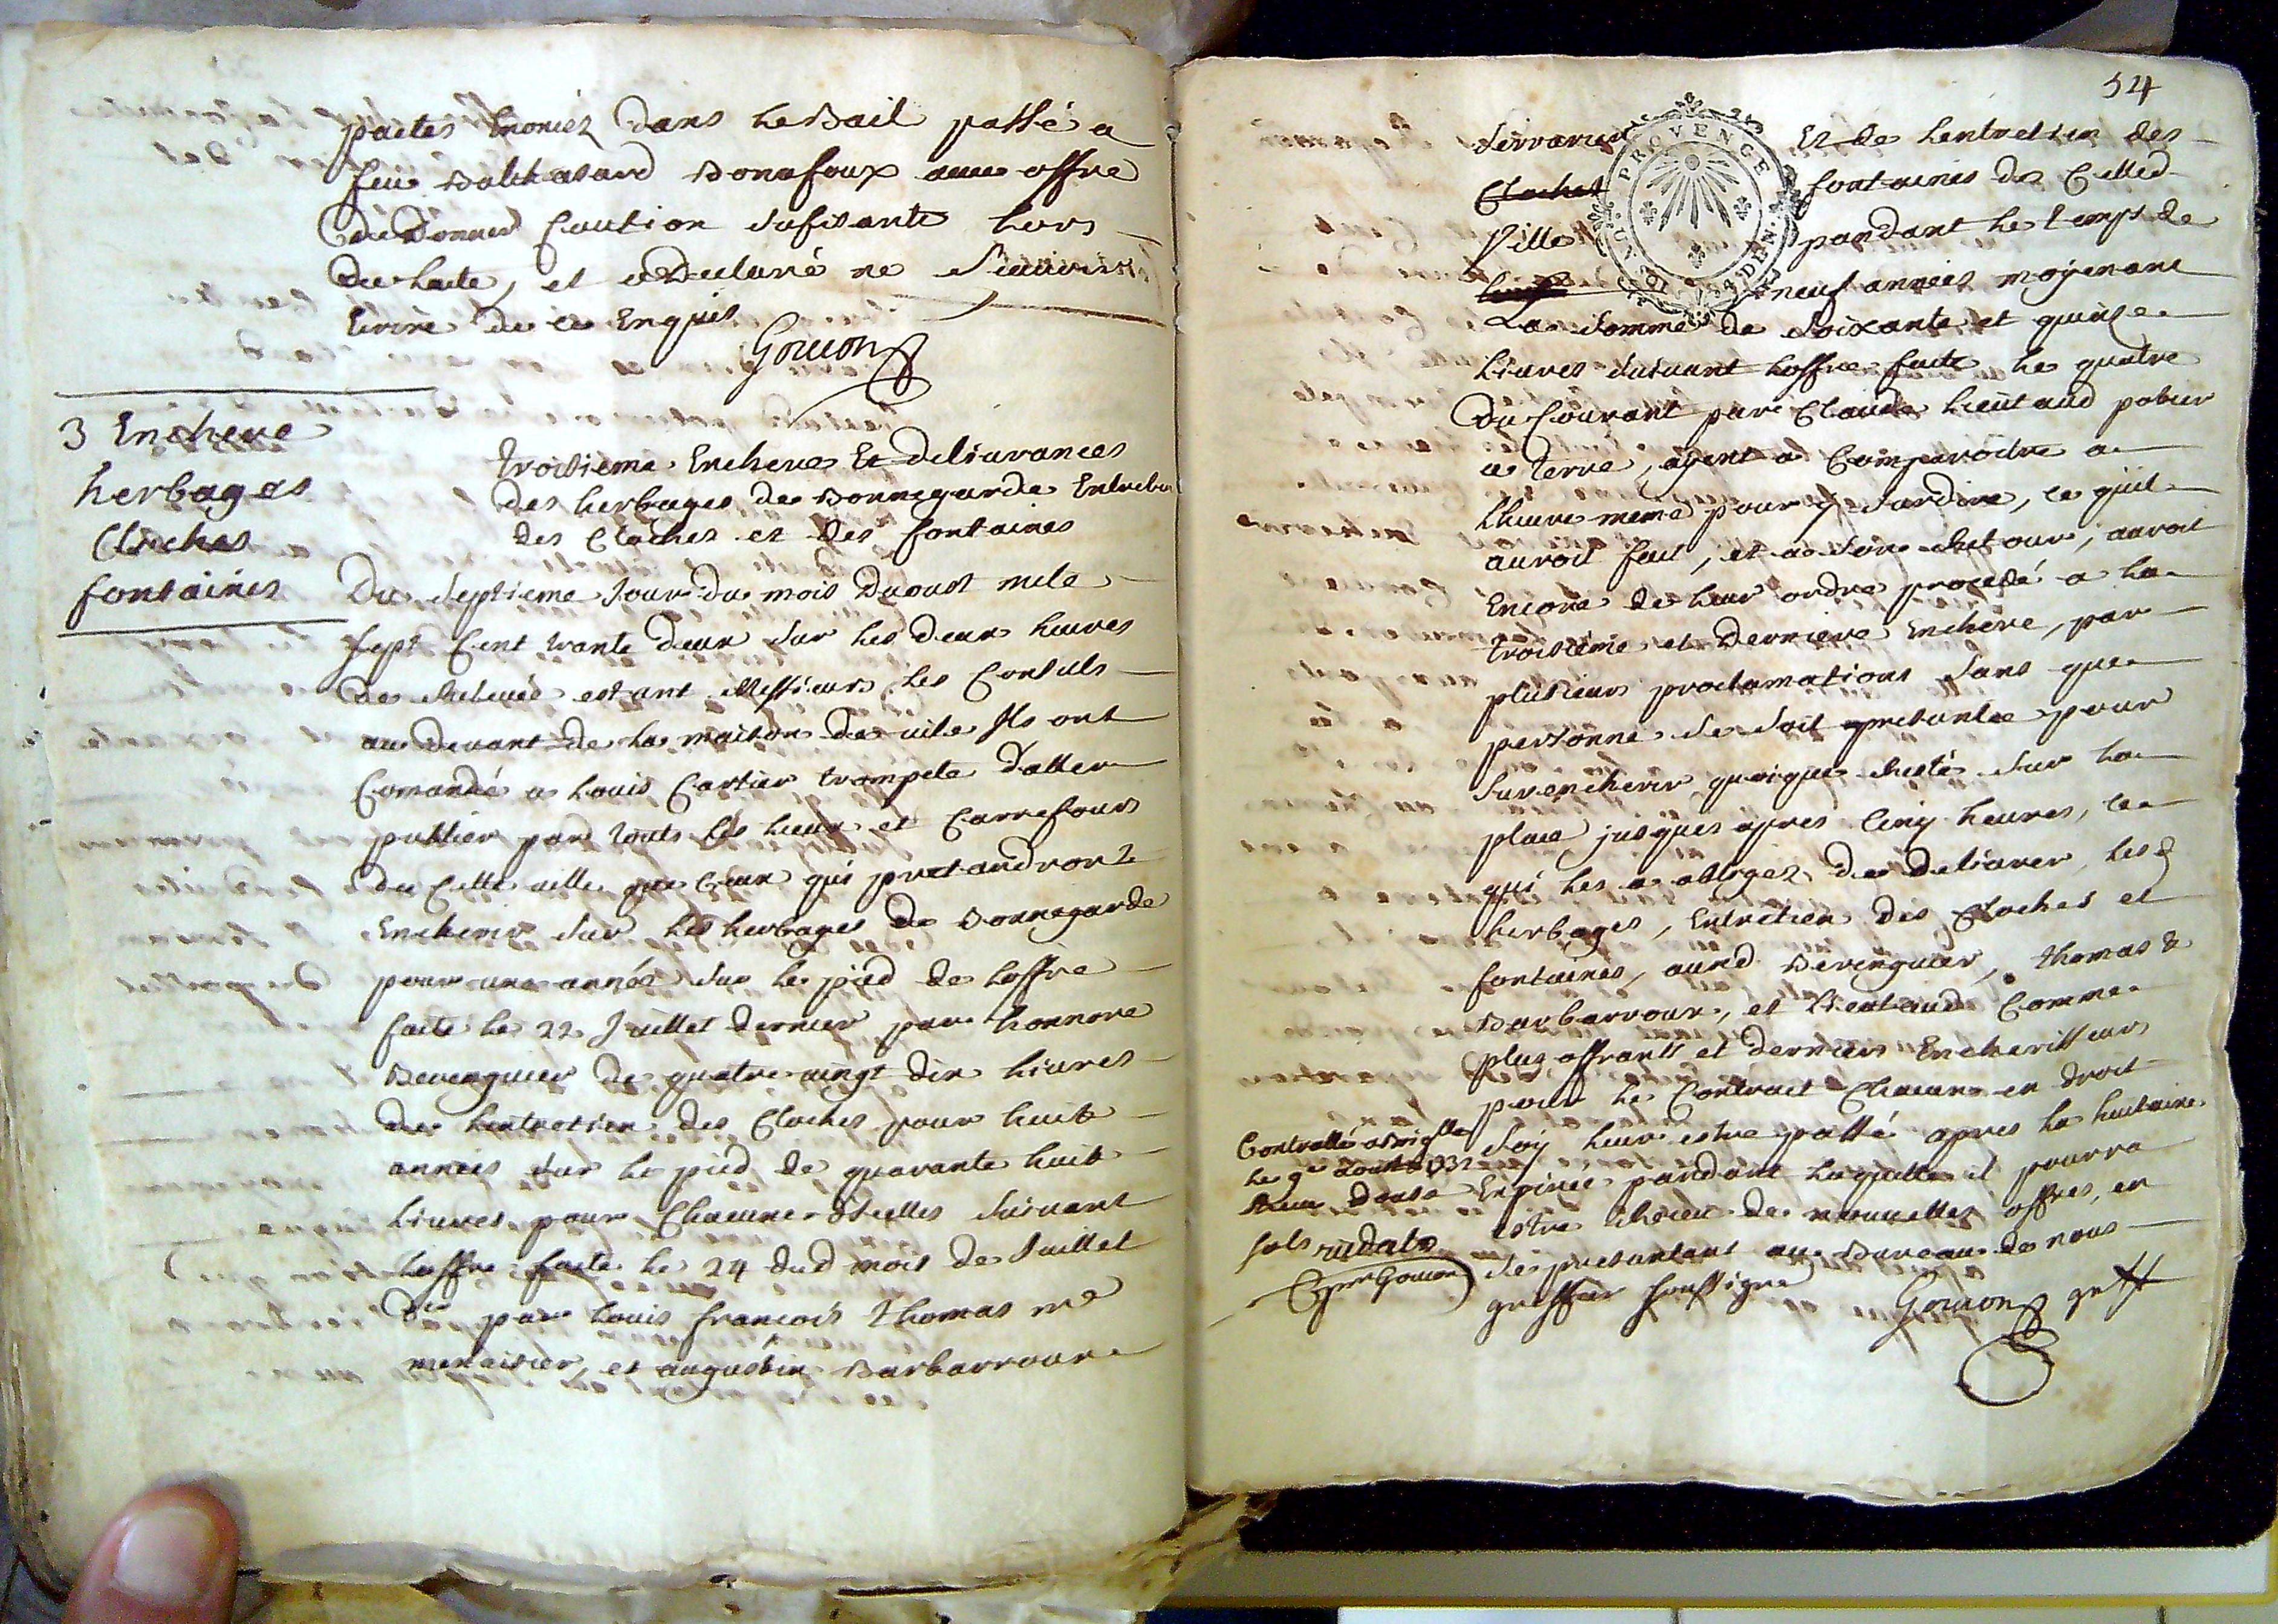 pactes Enoncéz dans le Bail passé a
feu Balthasard Bonnafoux avec offre
de donner Caution sufisante lors
de lacte, et a declaré ne scavoir
Ecrire de ce Enquis
Gouion
3 Enchere
herbages
Cloches
fontaines
troisieme Enchere Et delivrances
des herbages de Bonnegarde Entretien
des Cloches et des fontaines
Du septieme Jour du mois Daoust mile
sept Cent trante deux sur les deux heures
de relevée estant Messieurs les Consuls
au devant de la maison de vile Ils ont
Comandé a Louis Cartier trompete daller
publier par touts les lieux et Carrefours
de Cette ville que Ceux qui pretandront
Encherir sur les herbages de Bonnegarde
pour une année sur le pied de loffre
faite le 22 Juillet dernier par honnore
Berenguier de quatre vingt dix livres
de lentretien des Cloches pour huit
années sur le pied de quarante huit
livres pour Chacune dicelles suivant
loffre faite le 24 dud mois de Juillet
dr par Louis françois thomas me
menuisier, et augustin Barbarroux
54
serrurier Et de lentretien des
Cloches fontaines de Cetted
Ville pandant le temps de
neuf années moyenant
La somme de soixante et quinze
livres suivant loffre faite le quatre
du Courant par Claude Lieutaud potier
a terre, ayent a Comparoitre a
lheure meme pour y surdire, ce quil
auroit fait, et a son retour, auroit
Encore de leur ordre procedé a la
troisieme et derniere Enchere, par
plusieurs proclamations sans que
personne se soit presantée pour
surencherir, quoique resté sur la
place jusques apres Cinq heures, ce
qui les a obligez de delivrer les
herbages, Entretien des Cloches et
fontaines, aund Berenguier, thomas &
Barbarroux, et Lieutaud Comme
plus offrants et derniers Encherisseurs
pour le Contract Chacun en droit
soy leur estre passé apres la huitaine
Expirée pandant laquelle il pourra
estre receu de nouvelles offres, en
se presantant au Bureau de nous
greffier soussigne
Gouion greff
PROVENCE
DEN.
Controllé a Brig
le 9e aoust 1732
Receu douse
sols rudalz
Gouion